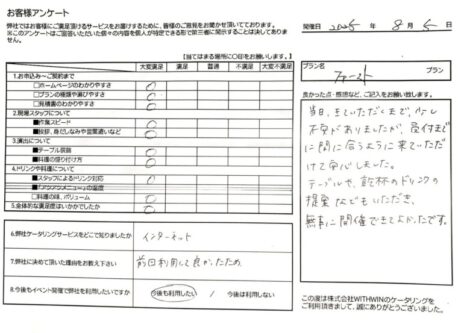 お客様アンケート
弊社ではお客様にご満足頂けるサービスをお届けするために、皆様のご意見をお聞かせ頂いております。
※このアンケートはご回答いただいた個々の内容を個人が特定できる形で第三者に開示することは決してありません。
開催日 2025年 8月 5日
【当てはまる場所に〇印をお願いします。】
大変満足 満足 普通 不満足 大変不満足
1.お申込み～ご契約まで
□ホームページのわかりやすさ
□プランの種類や選びやすさ
□見積書のわかりやすさ
2.現場スタッフについて
■作業スピード
■挨拶、身だしなみや言葉遣いなど
3.演出について
■テーブル装飾
■料理の盛り付け方
4.ドリンクや料理について
■スタッフによるドリンク対応
□料理の味、ボリューム
5.全体的な満足度はいかがでしたか
6.弊社ケータリングサービスをどこで知りましたか
インターネット
7.弊社に決めて頂いた理由をお教え下さい
前回利用して良かったため
8.今後もイベント開催で弊社を利用したいですか
今後も利用したい / 今後は利用しない
プラン名
プラン
良かった点・感想など、ご記入をお願い致します。
当日、きていただくまで、少し
不安がありましたが、受付まで
に間に合うように来ていただ
けて安心しました。
テーブルや、乾杯のドリンクの
提案などもいただき、
無事に開催できてよかったです。
この度は株式会社WITHWINのケータリングを
ご利用頂きまして、誠にありがとうございました。